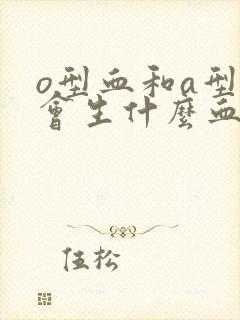 o型血和a型
會生什麼血
伍松